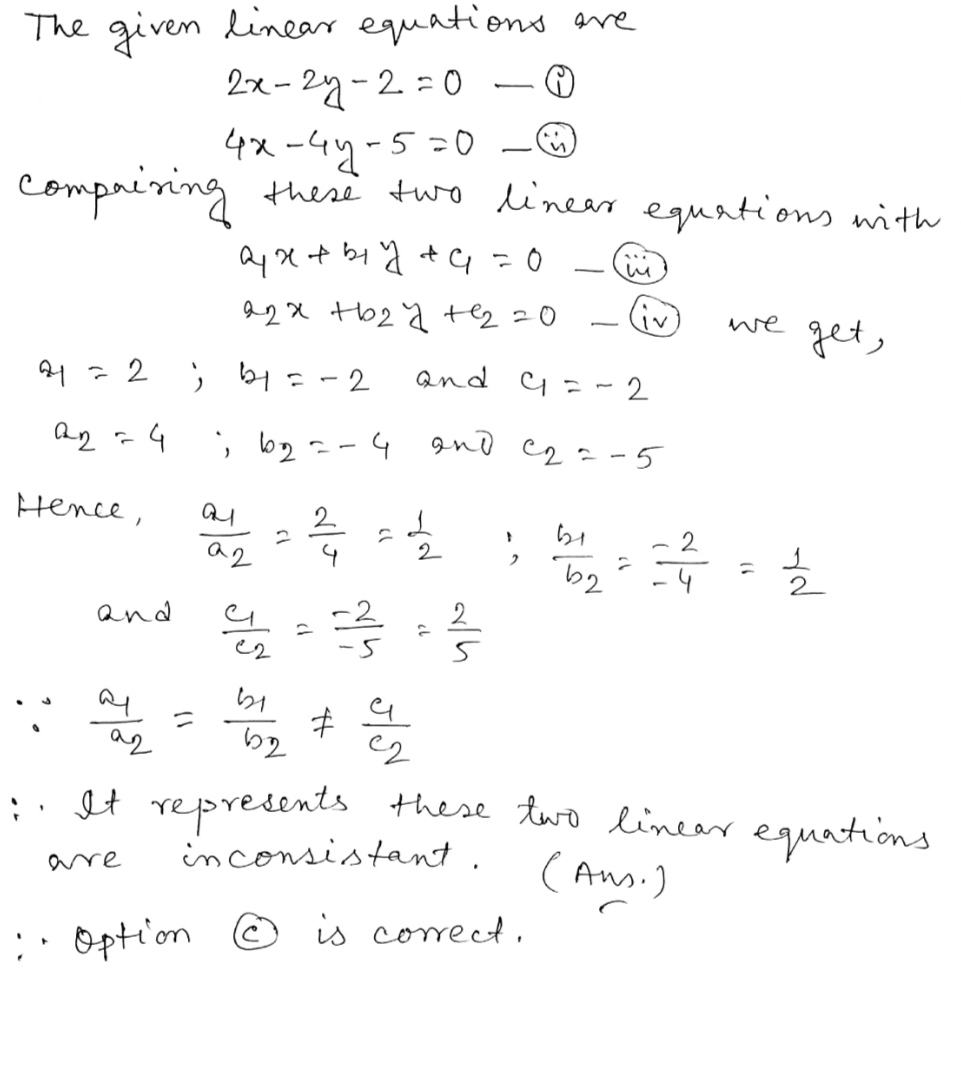 The given linear equations are
2x - 2y - 2 = 0 — (i)
4x - 4y - 5 = 0 — (ii)
Compairing these two linear equations with
a1x + b1y + c1 = 0 — (iii)
a2x + b2y + c2 = 0 — (iv) we get,
a1 = 2 ; b1 = -2 and c1 = -2
a2 = 4 ; b2 = -4 and c2 = -5
Hence, a1/a2 = 2/4 = 1/2 ; b1/b2 = -2/-4 = 1/2
and c1/c2 = -2/-5 = 2/5
∵ a1/a2 = b1/b2 ≠ c1/c2
∴ It represents these two linear equations
are inconsistant. (Ans.)
∴ Option (c) is correct.